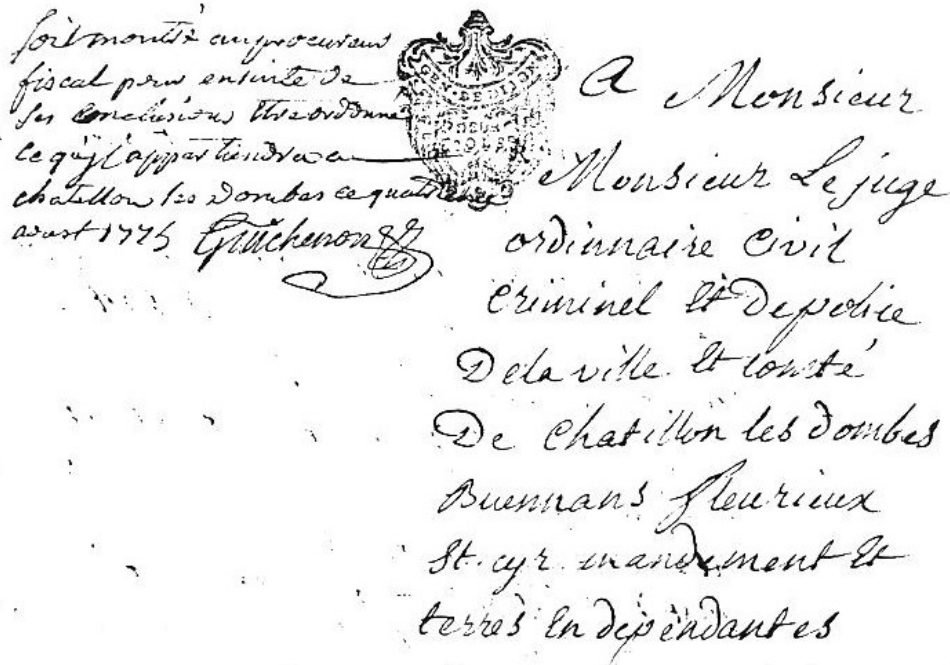 soit montré au procureur
fiscal pour ensuitte de
ses conclusions etre ordonné
ce qu'il appartiendra a
chatillon les Dombes ce quatorze
aoust 1775 Guichenon
GEN. DE LYON
A Monsieur
Monsieur Le juge
ordinnaire Civil
Criminel Et Depolice
Dela ville Et comté
De Chatillon les Dombes
Buennans fleurieux
St. cyr mandement Et
terres En dependantes